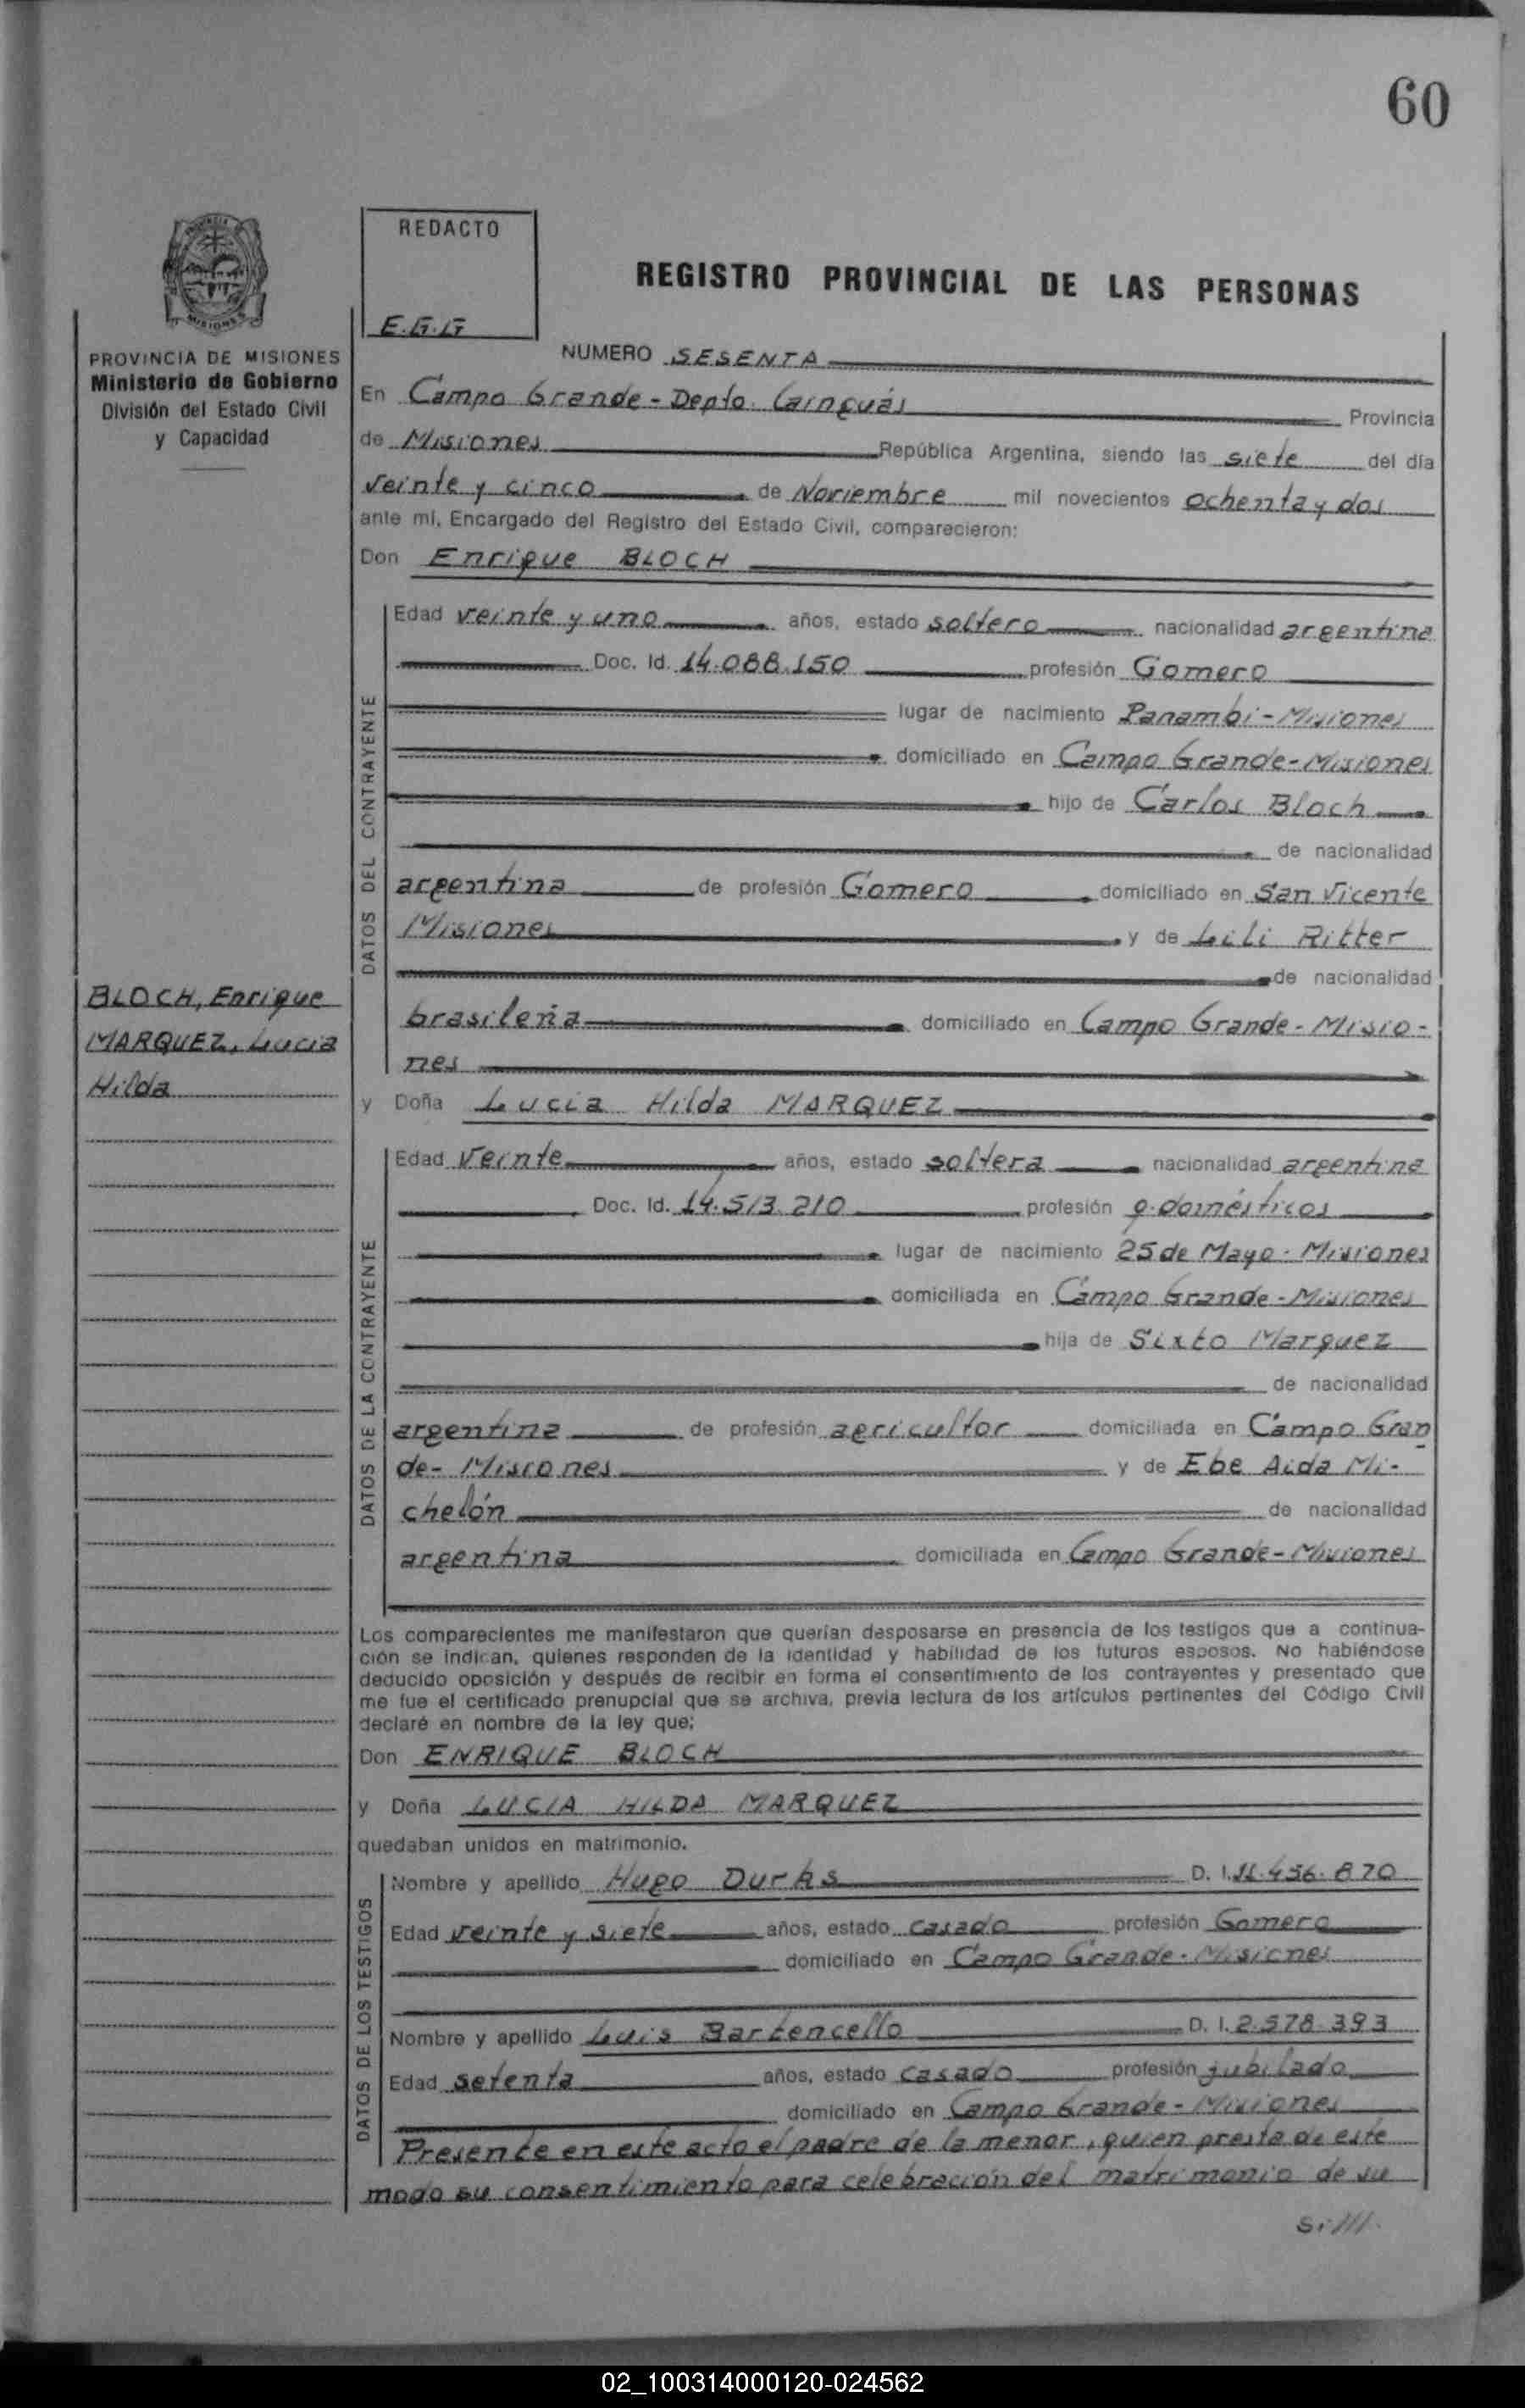 60
REDACTO
E.G.G
REGISTRO PROVINCIAL DE LAS PERSONAS
PROVINCIA DE MISIONES
Ministerio de Gobierno
División del Estado Civil
y Capacidad
NUMERO SESENTA
En Campo Grande - Depto. Cainguás Provincia
de Misiones República Argentina, siendo las siete del día
veinte y cinco de Noviembre mil novecientos ochenta y dos
ante mí, Encargado del Registro del Estado Civil, comparecieron:
Don Enrique BLOCH
DATOS DEL CONTRAYENTE
Edad veinte y uno años, estado soltero nacionalidad argentina
Doc. Id. 14.088.150 profesión Gomero
lugar de nacimiento Panambi - Misiones
domiciliado en Campo Grande - Misiones
hijo de Carlos Bloch
de nacionalidad
argentina de profesión Gomero domiciliado en San Vicente
Misiones y de Lili Ritter
de nacionalidad
brasileña domiciliado en Campo Grande - Misio-
nes
BLOCH, Enrique
MARQUEZ, Lucia
Hilda
y Doña Lucia Hilda MARQUEZ
DATOS DE LA CONTRAYENTE
Edad veinte años, estado soltera nacionalidad argentina
Doc. Id. 14.513.210 profesión q. domésticos
lugar de nacimiento 25 de Mayo - Misiones
domiciliada en Campo Grande - Misiones
hija de Sixto Marquez
de nacionalidad
argentina de profesión agricultor domiciliada en Campo Gran
de - Misiones y de Ebe Aida Mi-
chelón de nacionalidad
argentina domiciliada en Campo Grande - Misiones
Los comparecientes me manifestaron que querían desposarse en presencia de los testigos que a continua-
ción se indican, quienes responden de la identidad y habilidad de los futuros esposos. No habiéndose
deducido oposición y después de recibir en forma el consentimiento de los contrayentes y presentado que
me fue el certificado prenupcial que se archiva, previa lectura de los artículos pertinentes del Código Civil
declaré en nombre de la ley que;
Don ENRIQUE BLOCH
y Doña LUCIA HILDA MARQUEZ
quedaban unidos en matrimonio.
DATOS DE LOS TESTIGOS
Nombre y apellido Hugo Durks D. I. 11.456.870
Edad veinte y siete años, estado casado profesión Gomero
domiciliado en Campo Grande - Misiones
Nombre y apellido Luis Bartencello D. I. 2.578.393
Edad setenta años, estado casado profesión jubilado
domiciliado en Campo Grande - Misiones
Presente en este acto el padre de la menor, quien presta de este
modo su consentimiento para celebración del matrimonio de su
02_100314000120-024562